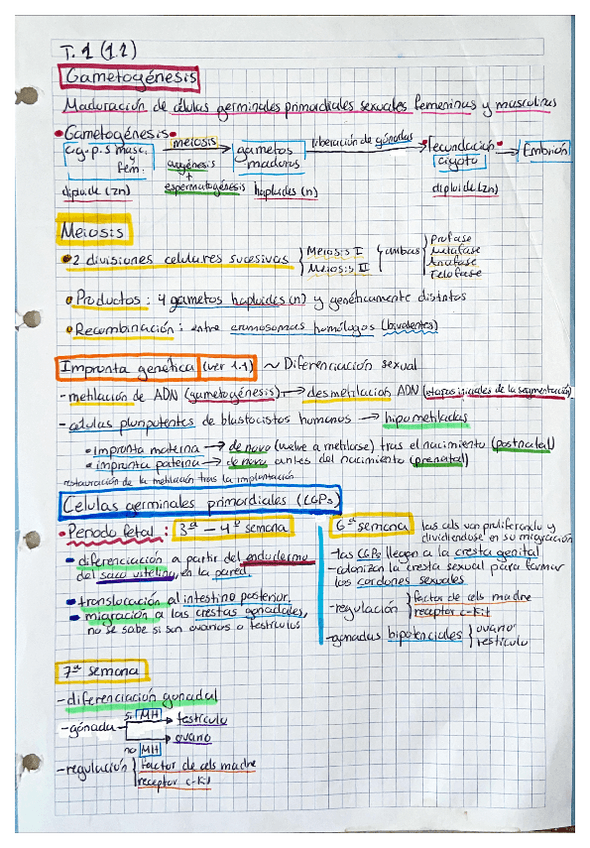 T.1 (1.2)
Gametogénesis
Maduración de células germinales primordiales sexuales femeninas y masculinas
• Gametogénesis •
c.g.p.s masc. y fem. meiosis → gametos maduros liberación de gónadas → • fecundación • cigoto → Embrión
ovogénesis + espermatogénesis
diploide (2n) haploides (n) diploide (2n)
Meiosis
• 2 divisiones celulares sucesivas { Meiosis I Meiosis II } ambas { Profase Metafase Anafase Telofase
• Productos: 4 gametos haploides (n) y genéticamente distintos
• Recombinación: entre cromosomas homólogos (bivalentes)
Impronta genética (ver 1.1) ~ Diferenciación sexual
- metilación de ADN (gametogénesis) → desmetilación ADN (etapas iniciales de la segmentación)
- células pluripotentes de blastocistos humanos → hipometiladas
• impronta materna → de novo (vuelve a metilarse) tras el nacimiento (postnatal)
• impronta paterna → de novo antes del nacimiento (prenatal)
restauración de la metilación tras la implantación
Células germinales primordiales (CGPs)
• Periodo fetal: 3ª - 4ª semana
• diferenciación a partir del endodermo
del saco vitelino, en la pared,
• translocación al intestino posterior,
• migración a las crestas gonadales,
no se sabe si son ovarios o testículos
6ª semana las cels van proliferando y
dividiéndose en su migración
- las CGPs llegan a la cresta genital
- colonizan la cresta sexual para formar
los cordones sexuales
- regulación { factor de cels madre
receptor c-Kit
- gonadas bipotenciales { ovario
testículo
7ª semana
- diferenciación gonadal
si MH → testículo
- gónada
→ ovario
no MH
- regulación { factor de cels madre
receptor c-Kit